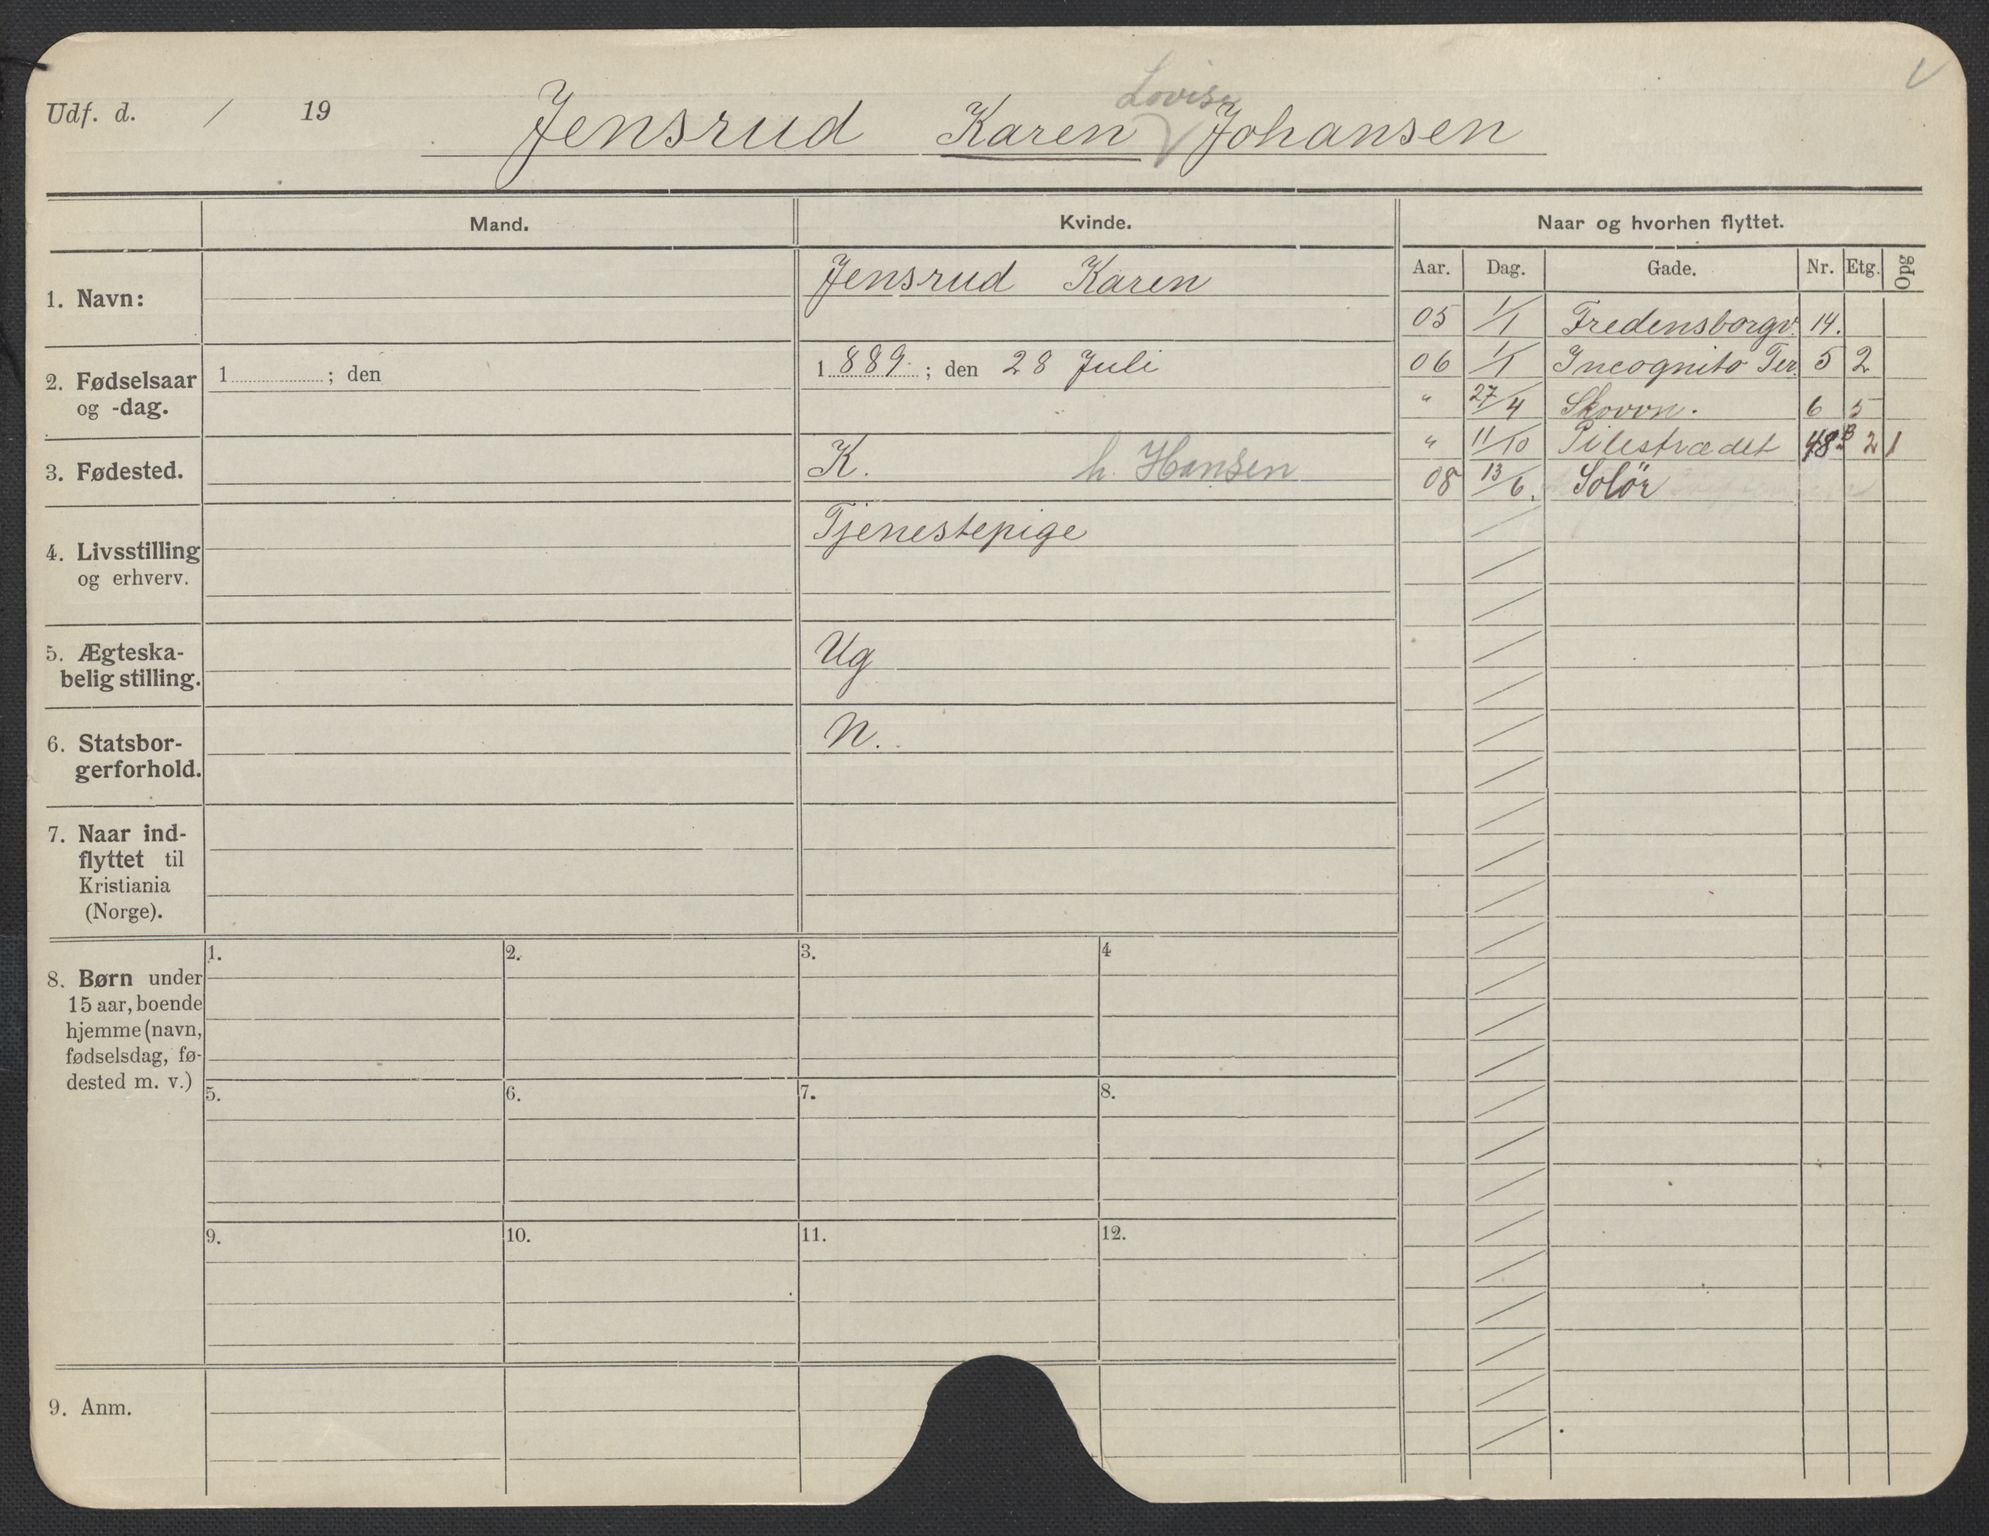 Udf. d. / 19
Lovise
Jensrud Karen V Johansen
V
Mand. Kvinde. Naar og hvorhen flyttet.
Aar. Dag. Gade. Nr. Etg. Opg
1. Navn: Jensrud Karen
05 1/1 Fredensborgv. 14.
2. Fødselsaar og -dag. 1 ; den
1889 ; den 28 Juli
06 1/1 Incognito Ter. 5 2
" 27/4 Skovvn. 6 5
" 11/10 Pilestrædet 48B 2 1
3. Fødested. K. h. Hansen
08 13/6. Solör
4. Livsstilling og erhverv. Tjenestepige
5. Ægteska-
belig stilling. Ug
6. Statsbor-
gerforhold. N.
7. Naar ind-
flyttet til
Kristiania
(Norge).
8. Børn under
15 aar, boende
hjemme (navn,
fødselsdag, fø-
dested m. v.)
1. 2. 3. 4
5. 6. 7. 8.
9. 10. 11. 12.
9. Anm.